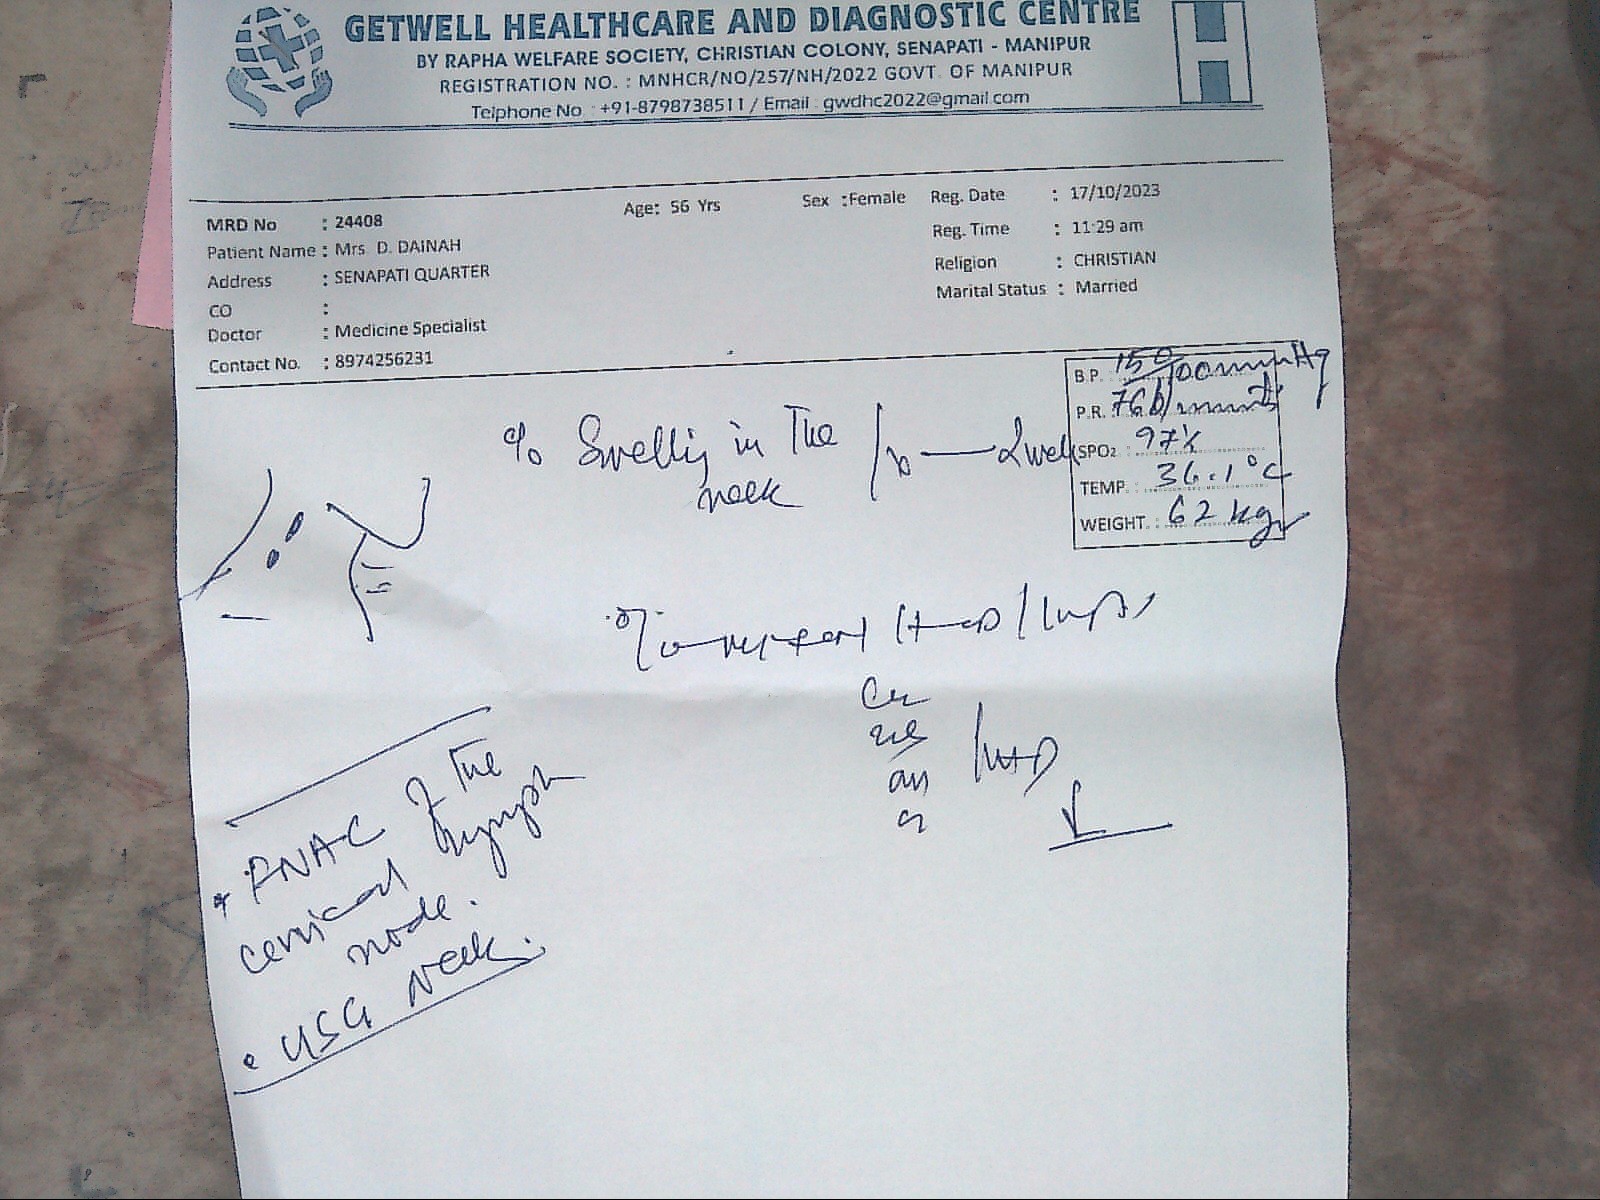 GETWELL HEALTHCARE AND DIAGNOSTIC CENTRE
BY RAPHA WELFARE SOCIETY, CHRISTIAN COLONY, SENAPATI - MANIPUR
REGISTRATION NO. : MNHCR/NO/257/NH/2022 GOVT. OF MANIPUR
Telphone No : +91-8798738511 / Email : gwdhc2022@gmail.com
H
MRD No : 24408 Age: 56 Yrs Sex :Female Reg. Date : 17/10/2023
Patient Name : Mrs. D. DAINAH Reg. Time : 11:29 am
Address : SENAPATI QUARTER Religion : CHRISTIAN
CO : Marital Status : Married
Doctor : Medicine Specialist
Contact No. : 8974256231
B.P. 150/100mmHg
P.R. 76b/
SPO2 : 97%
TEMP : 36.1°C
WEIGHT : 62 kgs
c/o Swelling in The
neck
FNAC of The
cervical lymph
node.
USG Neck.